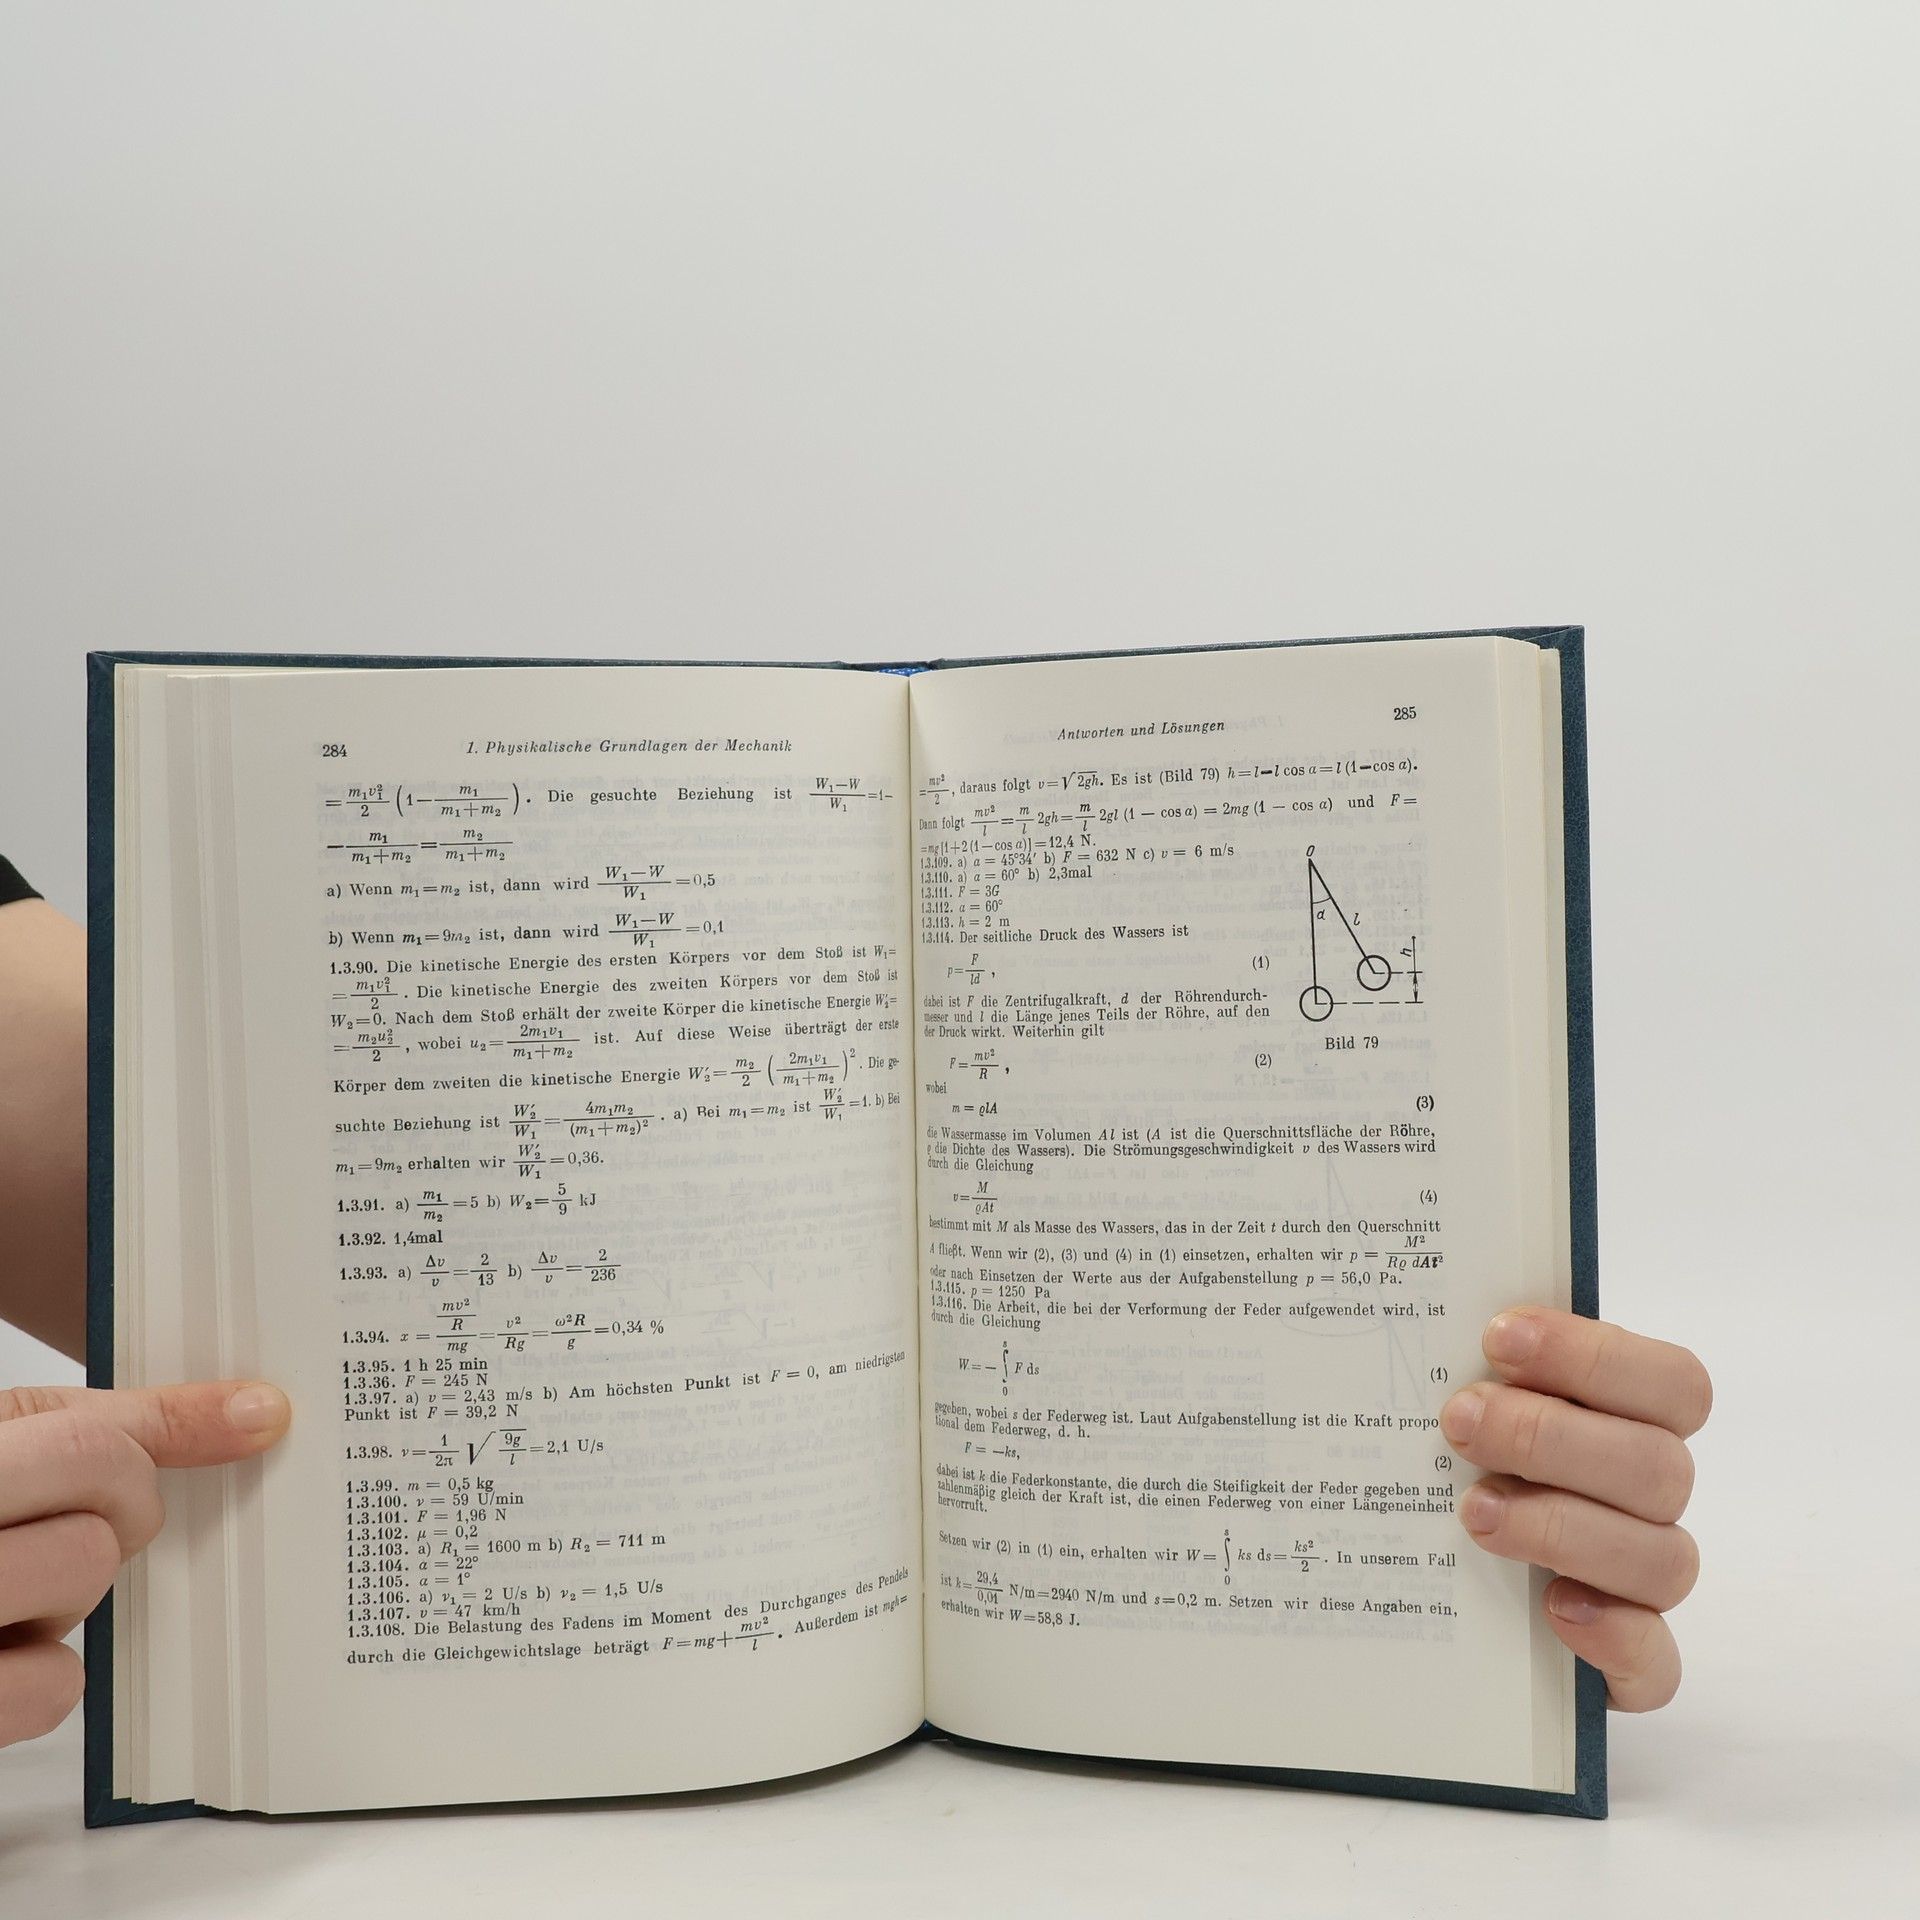 284 1. Physikalische Grundlagen der Mechanik
= m₁v₁²/2 (1 − m₁/(m₁+m₂)). Die gesuchte Beziehung ist (W₁−W)/W₁ = 1−
− m₁/(m₁+m₂) = m₂/(m₁+m₂)
a) Wenn m₁=m₂ ist, dann wird (W₁−W)/W₁ = 0,5
b) Wenn m₁=9m₂ ist, dann wird (W₁−W)/W₁ = 0,1
1.3.90. Die kinetische Energie des ersten Körpers vor dem Stoß ist W₁=
= m₁v₁²/2. Die kinetische Energie des zweiten Körpers vor dem Stoß ist
W₂=0. Nach dem Stoß erhält der zweite Körper die kinetische Energie W₂′=
= m₂u₂²/2, wobei u₂ = 2m₁v₁/(m₁+m₂) ist. Auf diese Weise überträgt der erste
Körper dem zweiten die kinetische Energie W₂′ = m₂/2 (2m₁v₁/(m₁+m₂))². Die ge-
suchte Beziehung ist W₂′/W₁ = 4m₁m₂/(m₁+m₂)². a) Bei m₁=m₂ ist W₂′/W₁ = 1. b) Bei
m₁=9m₂ erhalten wir W₂′/W₁ = 0,36.
1.3.91. a) m₁/m₂ = 5 b) W₂ = 5/9 kJ
1.3.92. 1,4mal
1.3.93. a) Δv/v = 2/13 b) Δv/v = 2/236
1.3.94. x = (mv²/R)/mg = v²/Rg = ω²R/g = 0,34 %
1.3.95. 1 h 25 min
1.3.36. F = 245 N
1.3.97. a) v = 2,43 m/s b) Am höchsten Punkt ist F = 0, am niedrigsten
Punkt ist F = 39,2 N
1.3.98. ν = 1/2π √(9g/l) = 2,1 U/s
1.3.99. m = 0,5 kg
1.3.100. ν = 59 U/min
1.3.101. F = 1,96 N
1.3.102. μ = 0,2
1.3.103. a) R₁ = 1600 m b) R₂ = 711 m
1.3.104. α = 22°
1.3.105. α = 1°
1.3.106. a) ν₁ = 2 U/s b) ν₂ = 1,5 U/s
1.3.107. v = 47 km/h
1.3.108. Die Belastung des Fadens im Moment des Durchganges des Pendels
durch die Gleichgewichtslage beträgt F = mg + mv²/l. Außerdem ist mgh=
Antworten und Lösungen 285
= mv²/2, daraus folgt v=√2gh. Es ist (Bild 79) h=l−l cos α=l (1−cos α).
Dann folgt mv²/l = m/l 2gh = m/l 2gl (1 − cos α) = 2mg (1 − cos α) und F=
=mg[1+2(1−cos α)]=12,4 N.
1.3.109. a) α = 45°34′ b) F = 632 N c) v = 6 m/s
1.3.110. a) α = 60° b) 2,3mal
1.3.111. F = 3G
1.3.112. α = 60°
1.3.113. h = 2 m
1.3.114. Der seitliche Druck des Wassers ist
p = F/ld, (1)
dabei ist F die Zentrifugalkraft, d der Röhrendurch-
messer und l die Länge jenes Teils der Röhre, auf den
der Druck wirkt. Weiterhin gilt
F = mv²/R, (2)
wobei
m = ϱlA (3)
O
α
l
h
Bild 79
die Wassermasse im Volumen Al ist (A ist die Querschnittsfläche der Röhre,
ϱ die Dichte des Wassers). Die Strömungsgeschwindigkeit v des Wassers wird
durch die Gleichung
v = M/ϱAt (4)
bestimmt mit M als Masse des Wassers, das in der Zeit t durch den Querschnitt
A fließt. Wenn wir (2), (3) und (4) in (1) einsetzen, erhalten wir p = M²/Rϱ dAt²
oder nach Einsetzen der Werte aus der Aufgabenstellung p = 56,0 Pa.
1.3.115. p = 1250 Pa
1.3.116. Die Arbeit, die bei der Verformung der Feder aufgewendet wird, ist
durch die Gleichung
W = − ∫₀ˢ F ds (1)
gegeben, wobei s der Federweg ist. Laut Aufgabenstellung ist die Kraft propo
tional dem Federweg, d. h.
F = −ks, (2)
dabei ist k die Federkonstante, die durch die Steifigkeit der Feder gegeben und
zahlenmäßig gleich der Kraft ist, die einen Federweg von einer Längeneinheit
hervorruft.
Setzen wir (2) in (1) ein, erhalten wir W = ∫₀ˢ ks ds = ks²/2. In unserem Fall
ist k = 29,4/0,01 N/m=2940 N/m und s=0,2 m. Setzen wir diese Angaben ein,
erhalten wir W=58,8 J.